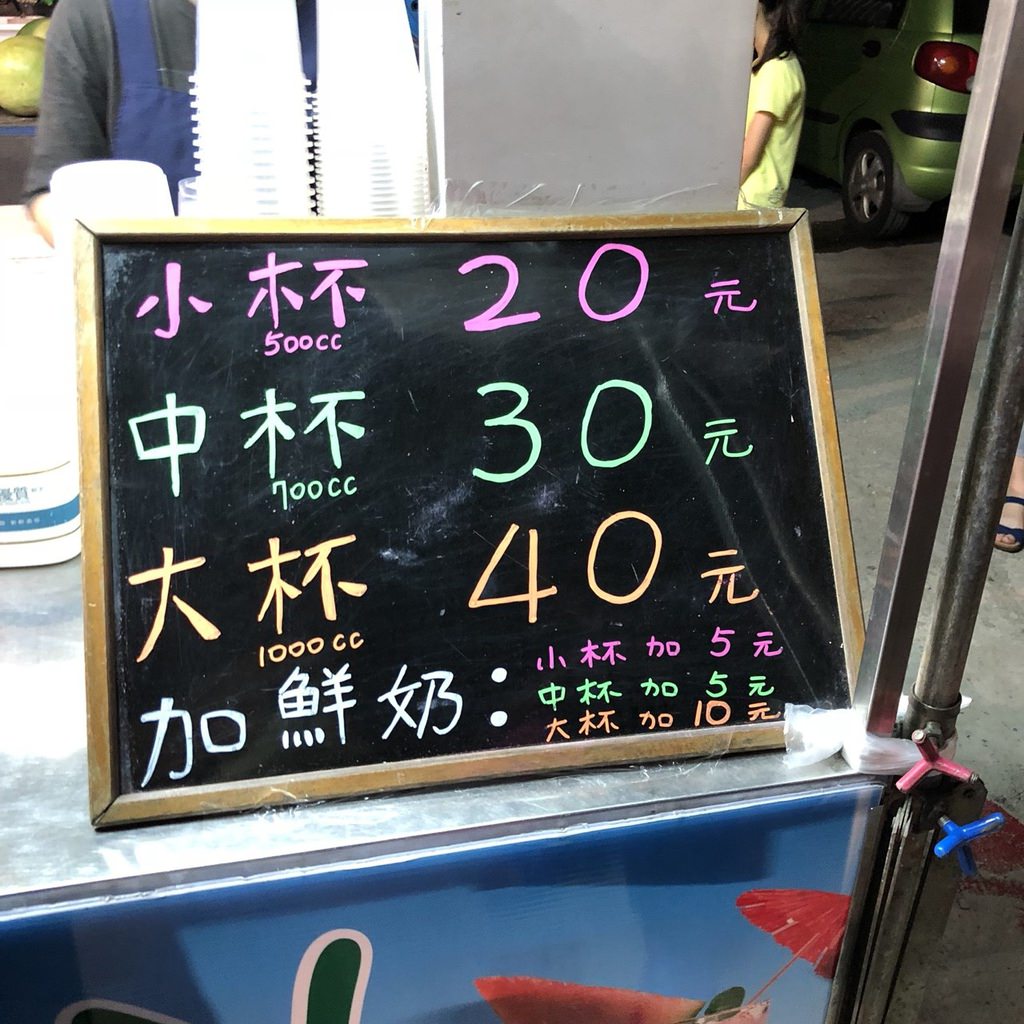 小杯 20 元
500cc
中杯 30 元
700cc
大杯 40 元
1000cc
加鮮奶：
小杯加 5 元
中杯加 5 元
大杯加 10 元
優質